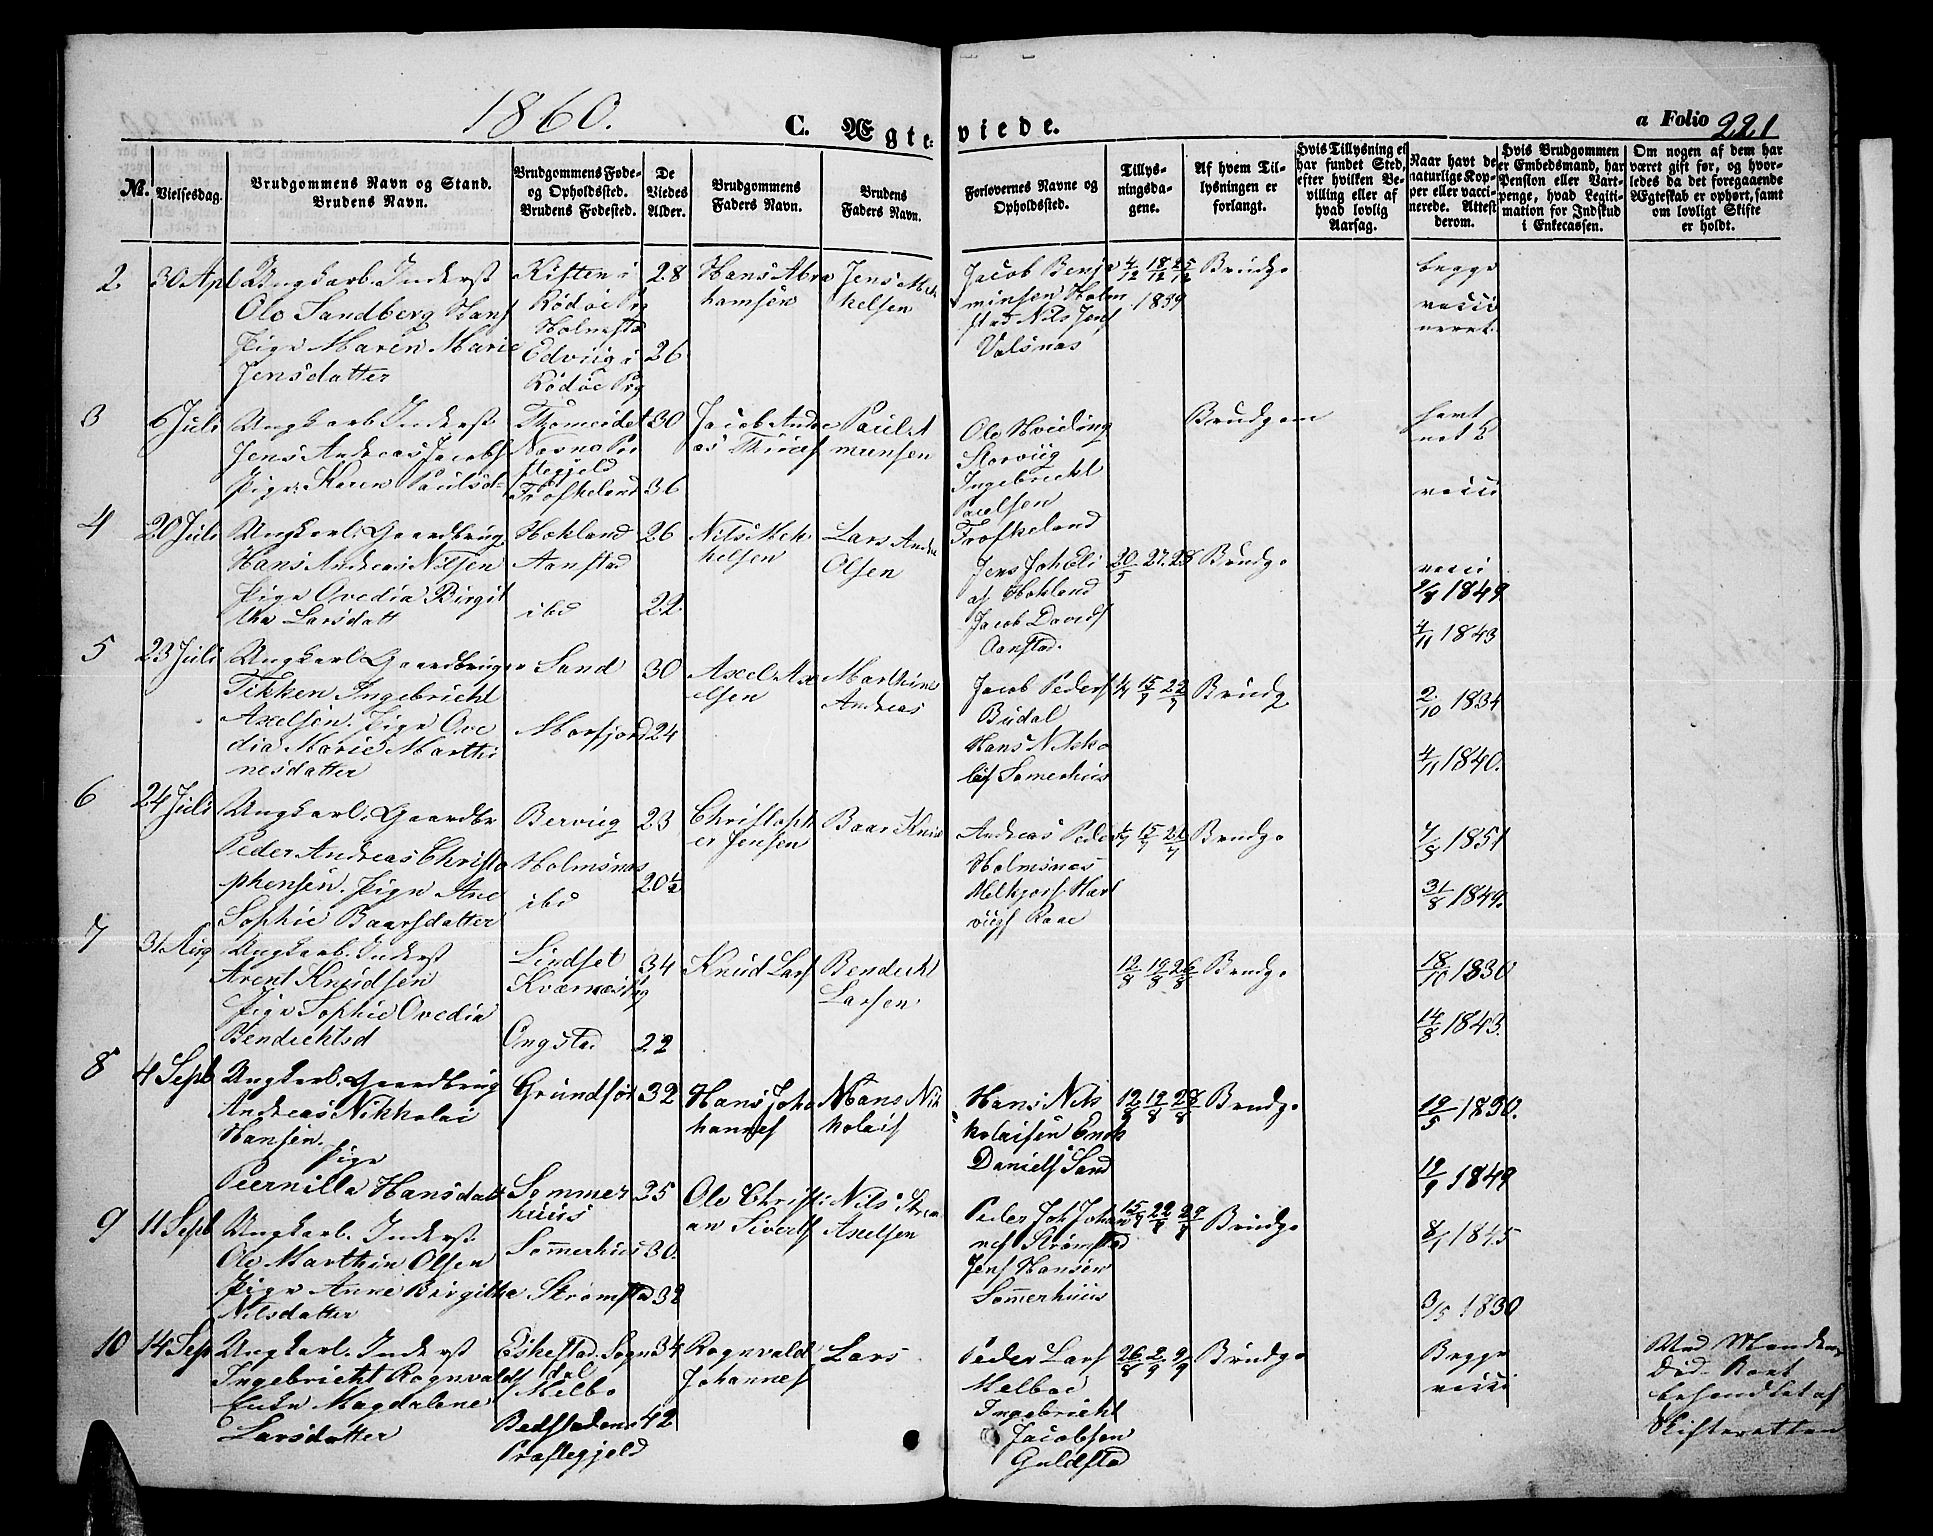 1860. C. Ægte: viede. a Folio 221
№.
Vielsesdag.
Brudgommens Navn og Stand.
Brudens Navn.
Brudgommens Føde-
og Opholdssted.
Brudens Fødested.
De
Viedes
Alder.
Brudgommens
Faders Navn.
Brudens
Faders Navn.
Forlovernes Navne og
Opholdssted.
Tillys-
ningsda-
gene.
Af hvem Til-
lysningen er
forlangt.
Hvis Tillysning ei
har fundet Sted,
efter hvilken Be-
villing eller af
hvad lovlig
Aarsag.
Naar havt de
naturlige Kop-
per eller vacci-
nerede. Attest
derom.
Hvis Brudgommen
er Embedsmand, har
Pension eller Vart-
penge, hvad Legiti-
mation for Indskud
i Enkecassen.
Om nogen af dem har
været gift før, og hvor-
ledes da det foregaaende
Ægteskab er ophørt, samt
om lovligt Skifte
er holdt.
2
30 Apl
Ungkarl Inderst
Ole Sandberg Hans
Pige Maren Marie
Jensdatter
Kisten i
Rødøe Prg
Holmstad
Edviig i
Rødøe Prg
28
26
Hans Abra
hamsen
Jens Mik
kelsen
Jacob Benja
minsen Holm
stad Nils Jens
Valsnæs
4/12 18/12 25/12
1859
Brudg.
begge
vacci
neret.
3
6 Juli
Ungkarl Inderst
Jens Andreas Jacobs
Pige Karen Paulsd
Thomeidet
Næsna Præ
stegjeld
Frøskeland
30
36
Jacob Andre
as Thiis
Paul A
munsen
Ole Hveding
Storviig
Ingebricht
Paulsen
Frøskeland
Brudgom
havt
nat k
vacci
4
20 Juli
Ungkarl. Gaardbrug
Hans Andreas Nilsen
Pige Ovedia Birgit
the Larsdatt
Hokland
Aanstad
ibd
26
22
Nils Mik
kelsen
Lars Andr
Olsen
Jens Joh Eli
af Hokland
Jacob Davids
Aanstad.
20/5 27. 28
Brudg.
vacci
9/8 1849
4/11 1843
5
23 Juli
Ungkarl. Gaardbruger
Tikken Ingebricht
Axelsen. Pige Ove
dia Marie Marthi
nesdatter
Sand
Morfjord
30
24
Axel Ax
elsen
Marthin
Andreas
Jacob Peders
Budal
Hans Nikko
lais Somerhuus
1/7 15/7 22/7
Brudg
2/10 1834
4/11 1840.
6
24 Juli
Ungkarl. Gaardbr
Peder Andreas Christo
phersen. Pige Ane
Sophie Baarsdatter
Berviig
Holmsnæs
ibd
23
20½
Christoph
er Jensen
Baar Knud
Andreas Peder
Holmsnæs
Melkjors Hart
viigs Raae
1/7 15/7 22/7
Brudg.
7/8 1851
31/8 1849.
7
31 Aug
Ungkarl. Inderst
Arent Knudsen
Pige Sophie Ovedia
Bendichtsd
Lindset
Kværnæs Prg
Ongstad
34
22
Knud Lars
Bendicht
Larsen
12/8 19/8 26/8
Brudg.
18/10 1830
14/8 1843.
8
4 Septb
Ungkarl. Gaardbrug
Andreas Nikkolai
Hansen.
Pige
Pernilla Hansdatt
Grundfør
Sommer
huus
32
25
Hans Joha
hannes
Hans Nik
kolais
Hans Nik
kolaisen
Daniels Sand
12/8 19/8 28/8
Brudg.
19/5 1830.
12/9 1849
9
11 Septb
Ungkarl. Inderst
Ole Marthin Olsen
Pige Anne Birgitthe
Nilsdatter
Sommerhuus
Strømstad
30.
32
Ole Christi
an Siverts
Nils
Axelsen
Peder Joh Johan
nes Strømstad
Jens Hansen
Sommerhuus
15/7 22/7 29/7
Brudg.
8/1 1845
3/5 1830
10
14 Sep
Ungkarl. Inderst
Ingebricht Rognvalds
Enke Magdalene
Larsdatter
Eskestad. Sogn
dal
Melbo
Badstadene
Præstegjeld
34
42
Rognvald
Johannes
Lars
Peder Lars
Melboe
Ingebricht
Jacobsen
Guldstad
26/8 2/9 9/9
Brudg.
Begge
vacci
Ved Manden
Død. Boet
behandlet af
Skifteretten